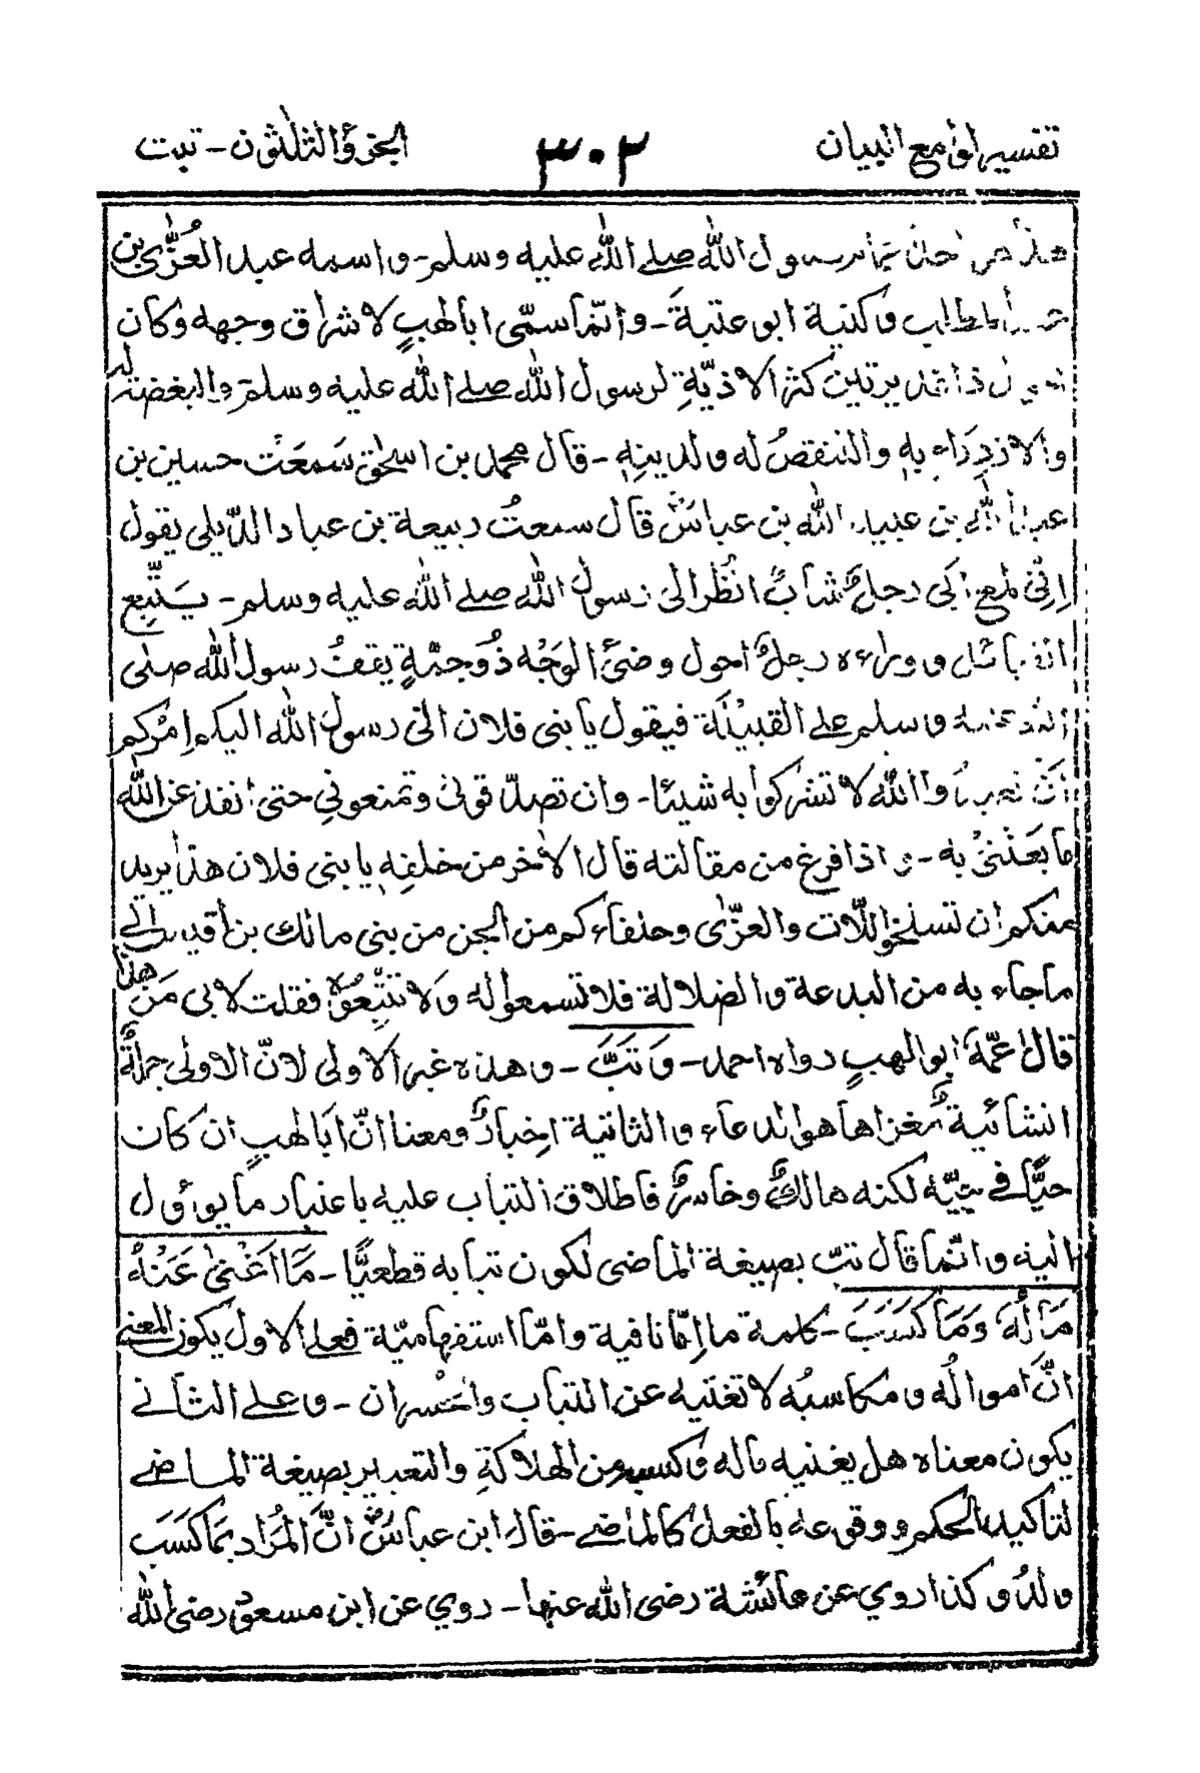 تفسير لوامع البيان ٣٠٢ الجزؤ الثلثون - تبت
رسول الله صلے الله عليه وسلم - واسمه عبد العُزّٰى بن
وكنية ابو عتبةَ - وانّما سمّى ابا لهبٍ لاشراق وجهه وكان
كثر الاذيّةِ لرسول الله صلے الله عليه وسلم والبغضة له
والازدِرَاء بهٖ والتنقصُ له ولدينِهٖ - قال محمد بن اسحٰق سَمعَت حسين بن
الله بن عباسؓ قال سمعتُ ربيعة بن عباد الدّيلى يقول
اِنّى لمع ابى رجلٌ شابٌّ انظُر الىٰ رسول الله صلے الله عليه وسلم - يَتَّبِع
ووراءه رجلٌ احول وضئ الوَجْه ذُو جمّةٍ يقفُ رسول الله صلى
وسلم على القبيْلَة فيقول يا بنى فلان انّى رسول الله اليكم اٰمُركم
الله لا تشركوا به شيئا - وان تصدّقونى وتمنعونِي حتى انفذ عن الله
ما بَعَثنىْ به - واذا فرغ من مقالته قال الاٰخر من خلفِهٖ يا بنى فلان هذا يريد
منكم ان تسلخوا اللّات والعزّٰى وحلفاءكم من الجن من بنى مالك بن اقيس الٰى
ما جاء به من البدعة والضلالة فلا تسمعوا له وَلا تتّبِعُوْه فقلت لابى مَنْ هٰذا
قال عمّهٗ ابو لهبٍ رواه احمد - وَتَبَّ - وهذه غير الاولى لانّ الاولى جملةٌ
انشائيةٌ مغزاها هو الدعاء والثانية اِخبارٌ ومعنا انّ ابَا لهبٍ ان كان
حيًّا فى لكنه هالكٌ وخاسرٌ فاطلاق التباب عليه باعتبار ما يوؤول
اليه وانّما قال تبّ بصيغة الماضى لكون تبابه قطعيًّا - مَا اَغْنٰى عَنْهُ
مَالُهٗ وَمَا كَسَبَ - كلمة ما اِمّا نافية وامّا استفهاميّة فعلے الاول يكون المعنى
انَّ اموالُه ومكاسبُه لا تغنيه عن التباب والخسران - وعلے الثانے
يكون معناه هل يغنيه ماله وكسبه من الهلاكةِ والتعبير بصيغة الماضے
لتاكيد الحكم ووقوعه بالفعل كالماضے - قال ابن عباسؓ انَّ المُرَاد بمَا كَسَبَ
ولدُه وكذا روي عن عائشة رضى الله عنها - روي عن ابن مسعودؓ رضى الله